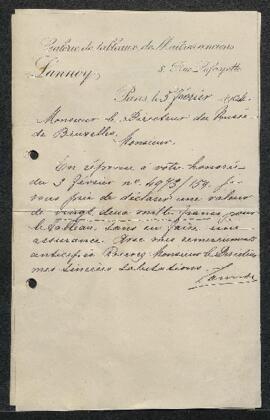 Galerie de tableaux de Maîtres anciens
Lannoy, 8, Rue Lafayette
Paris, le 5 février
Monsieur le Directeur du Musée
de Bruxelles,
Monsieur,
En réponse à votre honorée
du 3 février n° 4973/154. je
vous prie de déclarer une valeur
de vingt deux mille francs pour
le tableau, sans en faire une
assurance. Avec mes remerciements
anticipés Recevez Monsieur le Directeur
mes sincères salutations.
Lannoy